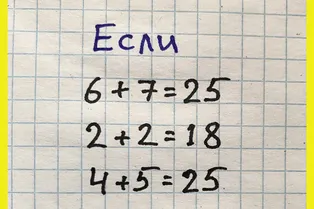 Если
6+7=25
2+2=18
4+5=25